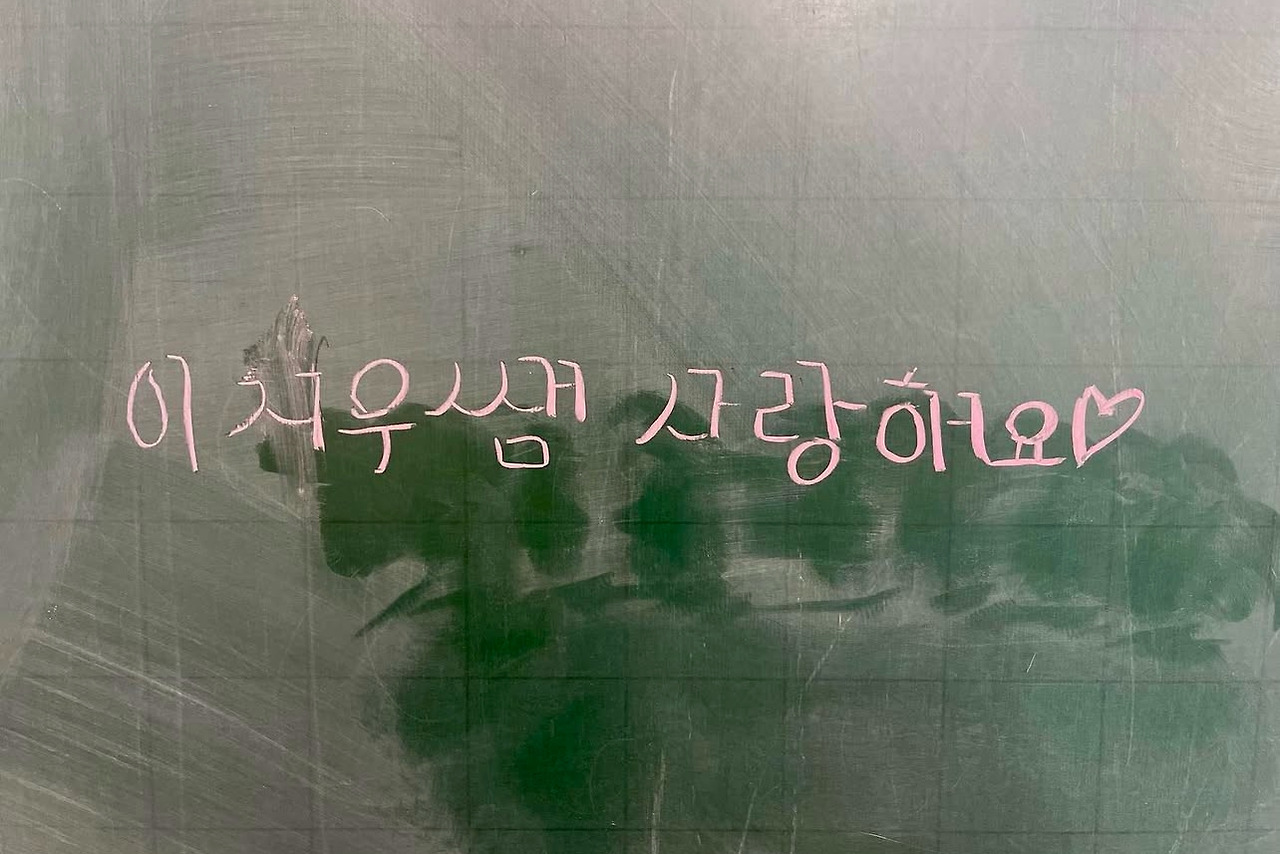 이지우쌤 사랑해요♡